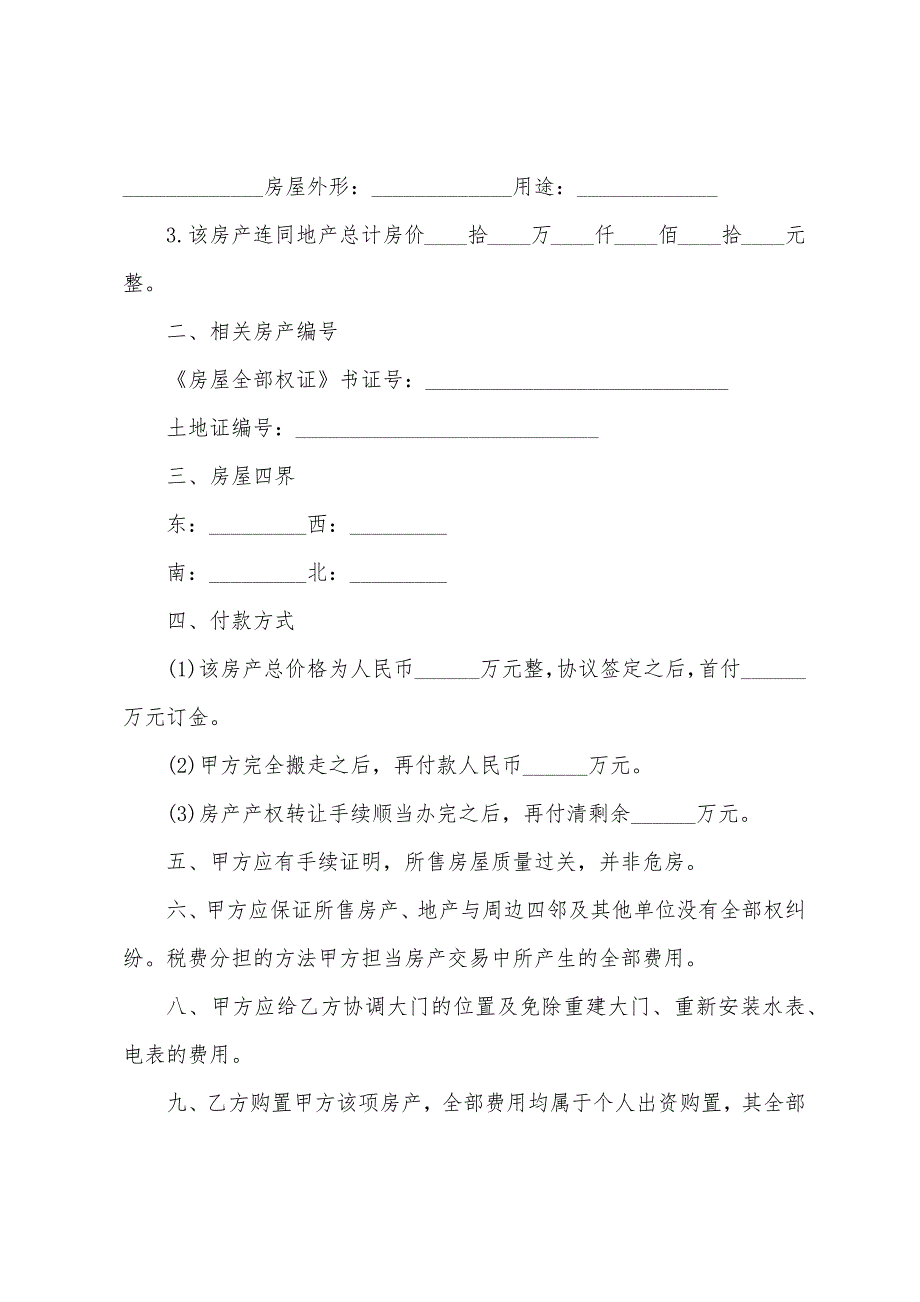 _____________房屋外形：_____________用途：_____________
3.该房产连同地产总计房价____拾____万____仟____佰____拾____元
整。
二、相关房产编号
《房屋全部权证》书证号：____________________________
土地证编号：____________________________
三、房屋四界
东：_________西：_________
南：_________北：_________
四、付款方式
(1)该房产总价格为人民币______万元整，协议签定之后，首付______
万元订金。
(2)甲方完全搬走之后，再付款人民币______万元。
(3)房产产权转让手续顺当办完之后，再付清剩余______万元。
五、甲方应有手续证明，所售房屋质量过关，并非危房。
六、甲方应保证所售房产、地产与周边四邻及其他单位没有全部权纠
纷。税费分担的方法甲方担当房产交易中所产生的全部费用。
八、甲方应给乙方协调大门的位置及免除重建大门、重新安装水表、
电表的费用。
九、乙方购置甲方该项房产，全部费用均属于个人出资购置，其全部